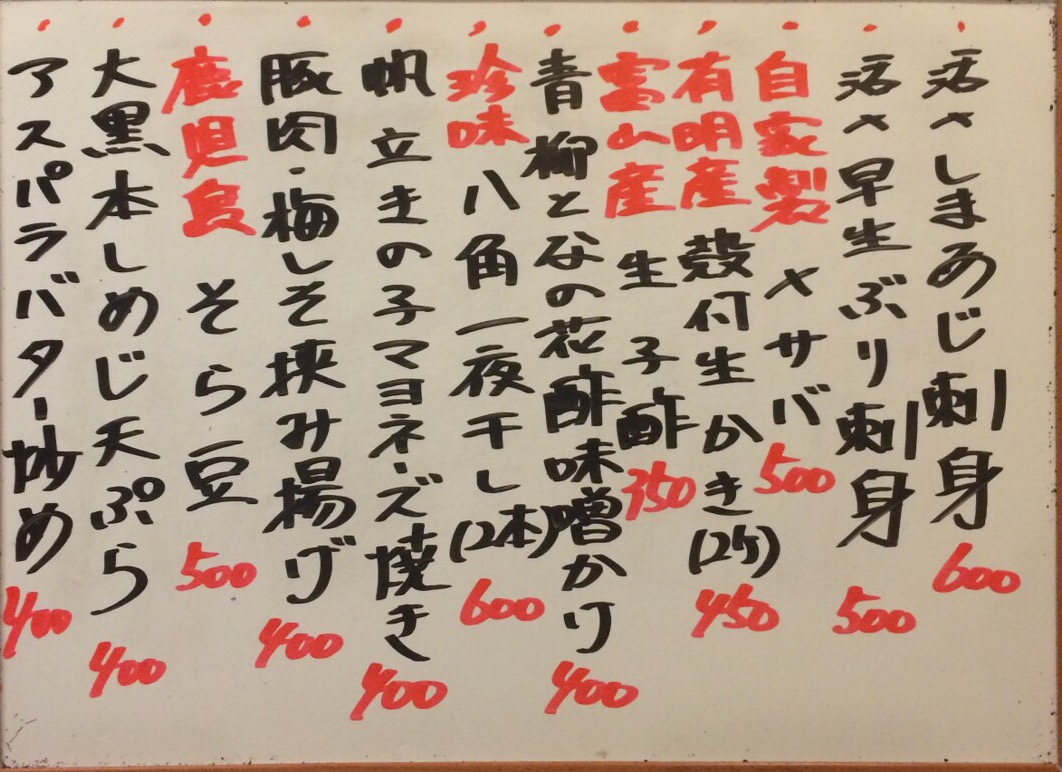 活〆しまあじ刺身 600
活〆早生ぶり刺身 500
自家製 〆サバ 500
有明産 殻付生かき(2ケ) 450
富山産 生子酢 350
青柳となの花酢味噌かけ 400
珍味 八角一夜干し(2本) 600
帆立きの子マヨネーズ焼き 400
豚肉・梅しそ挟み揚げ 400
鹿児島 そら豆 500
大黒本しめじ天ぷら 400
アスパラバター炒め 400